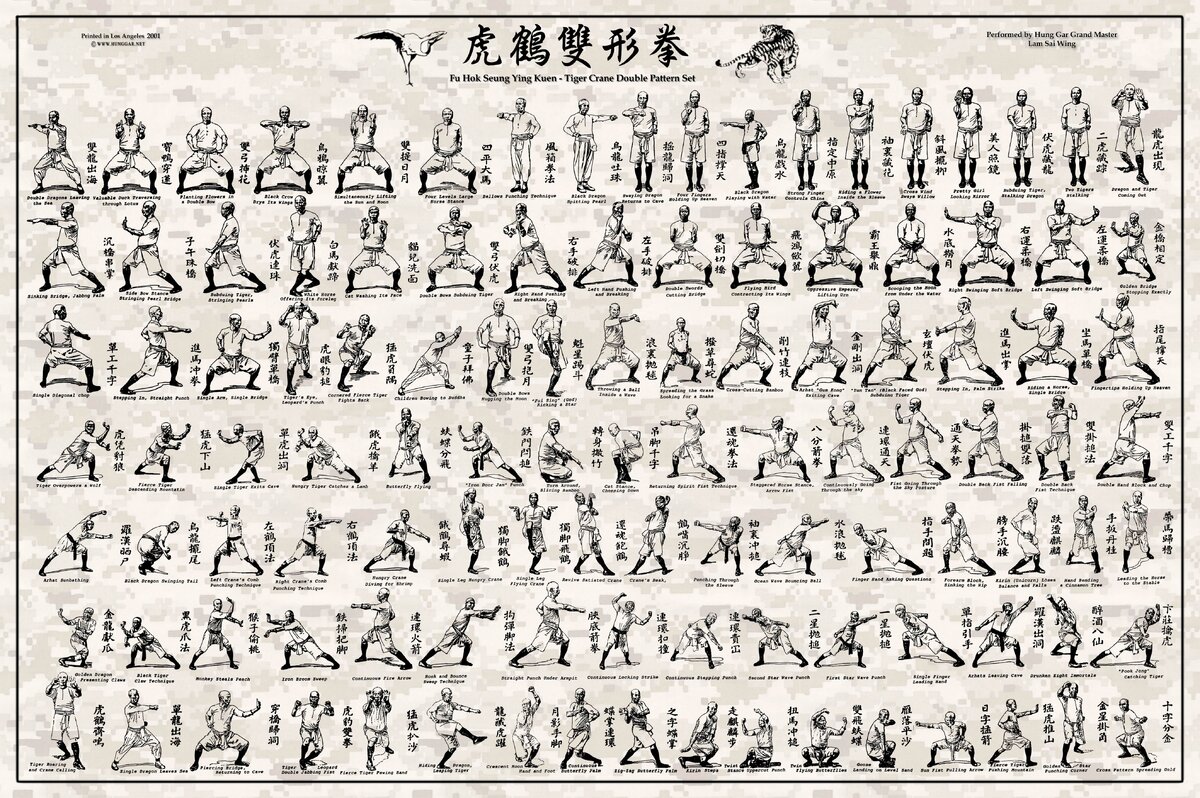 Printed in Los Angeles 2001
© WWW.HUNGGAR.NET
虎鶴雙形拳
Fu Hok Seung Ying Kuen - Tiger Crane Double Pattern Set
Performed by Hung Gar Grand Master
Lam Sai Wing
雙龍出海
寶鴨穿蓮
雙弓挿花
烏鴉晾翼
雙提日月
四平大馬
風箱拳法
烏龍吐珠
四指撐天
烏龍戲水
指定中原
袖裏藏花
斜風擺柳
美人照鏡
伏虎藏龍
二虎藏踪
龍虎出現
Double Dragons Leaving
the Sea
Valuable Duck Traversing
through Lotus
Planting Flowers in
a Double Bow
Black Crow
Drys Its Wings
Simultaneously Lifting
the Sun and Moon
Four Levels Large
Horse Stance
Bellows Punching Technique
Black Dragon
Spitting Pearl
Swaying Dragon
Returns to Cave
Four Fingers
Holding Up Heaven
Black Dragon
Playing with Water
Strong Finger
Controls China
Hiding a Flower
Inside the Sleeve
Cross Wind
Sways Willow
Pretty Girl
Looking Mirror
Subduing Tiger,
Stalking Dragon
Two Tigers
Stalking
Dragon and Tiger
Coming Out
沉橋串掌
子午珠橋
伏虎連珠
白馬獻蹄
貓兒洗面
雙弓伏虎
右手破排
左手破排
雙劍切橋
飛鴻斂翼
霸王舉鼎
水底撈月
右運柔橋
左運柔橋
金橋相定
Sinking Bridge, Jabbing Palm
Side Bow Stance,
Stringing Pearl Bridge
Subduing Tiger,
Stringing Pearls
White Horse
Offering Its Foreleg
Cat Washing Its Face
Double Bows Subduing Tiger
Right Hand Pushing
and Breaking
Left Hand Pushing
and Breaking
Double Swords
Cutting Bridge
Flying Bird
Contracting Its Wings
Oppressive Emperor
Lifting Urn
Scooping the Moon
from Under the Water
Right Swinging Soft Bridge
Left Swinging Soft Bridge
Golden Bridge
Stopping Exactly
單工千字
進馬冲拳
獨臂單橋
虎眼豹搥
猛虎負隅
童子拜佛
雙弓抱月
魁星踢斗
浪裏抛毬
撥草尋蛇
削竹連枝
金剛出洞
玄壇伏虎
進馬出掌
坐馬單橋
指尾撐天
Single Diagonal Chop
Stepping In, Straight Punch
Single Arm, Single Bridge
Tiger's Eye,
Leopard's Punch
Cornered Fierce Tiger
Fights Back
Children Bowing to Buddha
Double Bows
Hugging the Moon
"Fui Sing" (God)
Kicking a Star
Throwing a Ball
Inside a Wave
Spreading the Grass
Looking for a Snake
Cross-Cutting Bamboo
Arhat "Gum Kong"
Exiting Cave
"Yun Tan" (Black Faced God)
Subduing Tiger
Stepping In, Palm Strike
Riding a Horse,
Single Bridge
Fingertips Holding Up Heaven
虎伏豺狼
猛虎下山
單虎出洞
餓虎擒羊
蚨蝶分飛
鉄門閂搥
轉身撇竹
吊脚千字
還魂拳法
八分箭拳
連環通天
通天拳勢
掛搥雙落
雙掛搥法
雙工千字
Tiger Overpowers a Wolf
Fierce Tiger
Descending Mountain
Single Tiger Exits Cave
Hungry Tiger Catches a Lamb
Butterfly Flying
"Iron Door Jam" Punch
Turn Around,
Slicing Bamboo
Cat Stance,
Chopping Down
Returning Spirit Fist Technique
Staggered Horse Stance,
Arrow Fist
Continuously Going
Through the sky
Fist Going Through
the Sky Posture
Double Back Fist Falling
Double Back
Fist Technique
Double Hand Block and Chop
羅漢晒尸
烏龍擺尾
左鶴頂法
右鶴頂法
餓鶴尋蝦
獨脚餓鶴
獨脚飛鶴
還魂飽鶴
鶴嘴沉踭
袖裏冲搥
水浪抛毬
指手問題
膀手沉腰
跌蕩麒麟
手扳丹桂
帶馬歸槽
Arhat Sunbathing
Black Dragon Swinging Tail
Left Crane's Comb
Punching Technique
Right Crane's Comb
Punching Technique
Hungry Crane
Diving for Shrimp
Single Leg Hungry Crane
Single Leg
Flying Crane
Revive Satiated Crane
Crane's Beak,
Punching Through
the Sleeve
Ocean Wave Bouncing Ball
Finger Hand Asking Questions
Forearm Block,
Sinking the Hip
Kirin (Unicorn) Loses
Balance and Falls
Hand Bending
a Cinnamon Tree
Leading the Horse
to the Stable
金龍獻爪
黑虎爪法
猴子偷桃
鉄掃把脚
連環火箭
狗彈脚法
肘底箭拳
連環扣撞
連環貴沉
二星抛搥
一星抛搥
單指引手
羅漢出洞
醉酒八仙
卞莊擒虎
Golden Dragon
Presenting Claws
Black Tiger
Claw Technique
Monkey Steals Peach
Iron Broom Sweep
Continuous Fire Arrow
Hook and Bounce
Sweep Technique
Straight Punch Under Armpit
Continuous Locking Strike
Continuous Stepping Punch
Second Star Wave Punch
First Star Wave Punch
Single Finger
Leading Hand
Arhats Leaving Cave
Drunken Eight Immortals
"Pook Jong"
Catching Tiger
虎鶴齊鳴
單龍出海
穿橋歸洞
虎豹雙拳
猛虎扒沙
龍藏虎躍
月影手脚
蝶掌連環
之字蝶掌
走麒麟步
扭馬冲搥
雙飛蚨蝶
雁落平沙
日字猛箭
猛虎推山
金星掛角
十字分金
Tiger Roaring
and Crane Calling
Single Dragon Leaves Sea
Piercing Bridge,
Returning to Cave
Tiger Leopard
Double Jabbing Fist
Fierce Tiger Pawing Sand
Hiding Dragon,
Leaping Tiger
Crescent Moon
Hand and Foot
Continuous
Butterfly Palm
Zig-Zag Butterfly Palm
Kirin Steps
Twist
Stance Uppercut Punch
Twin
Flying Butterflies
Goose
Landing on Level Sand
Sun Fist Pulling Arrow
Fierce Tiger
Pushing Mountain
Golden Star
Punching Corner
Cross Pattern Spreading Gold